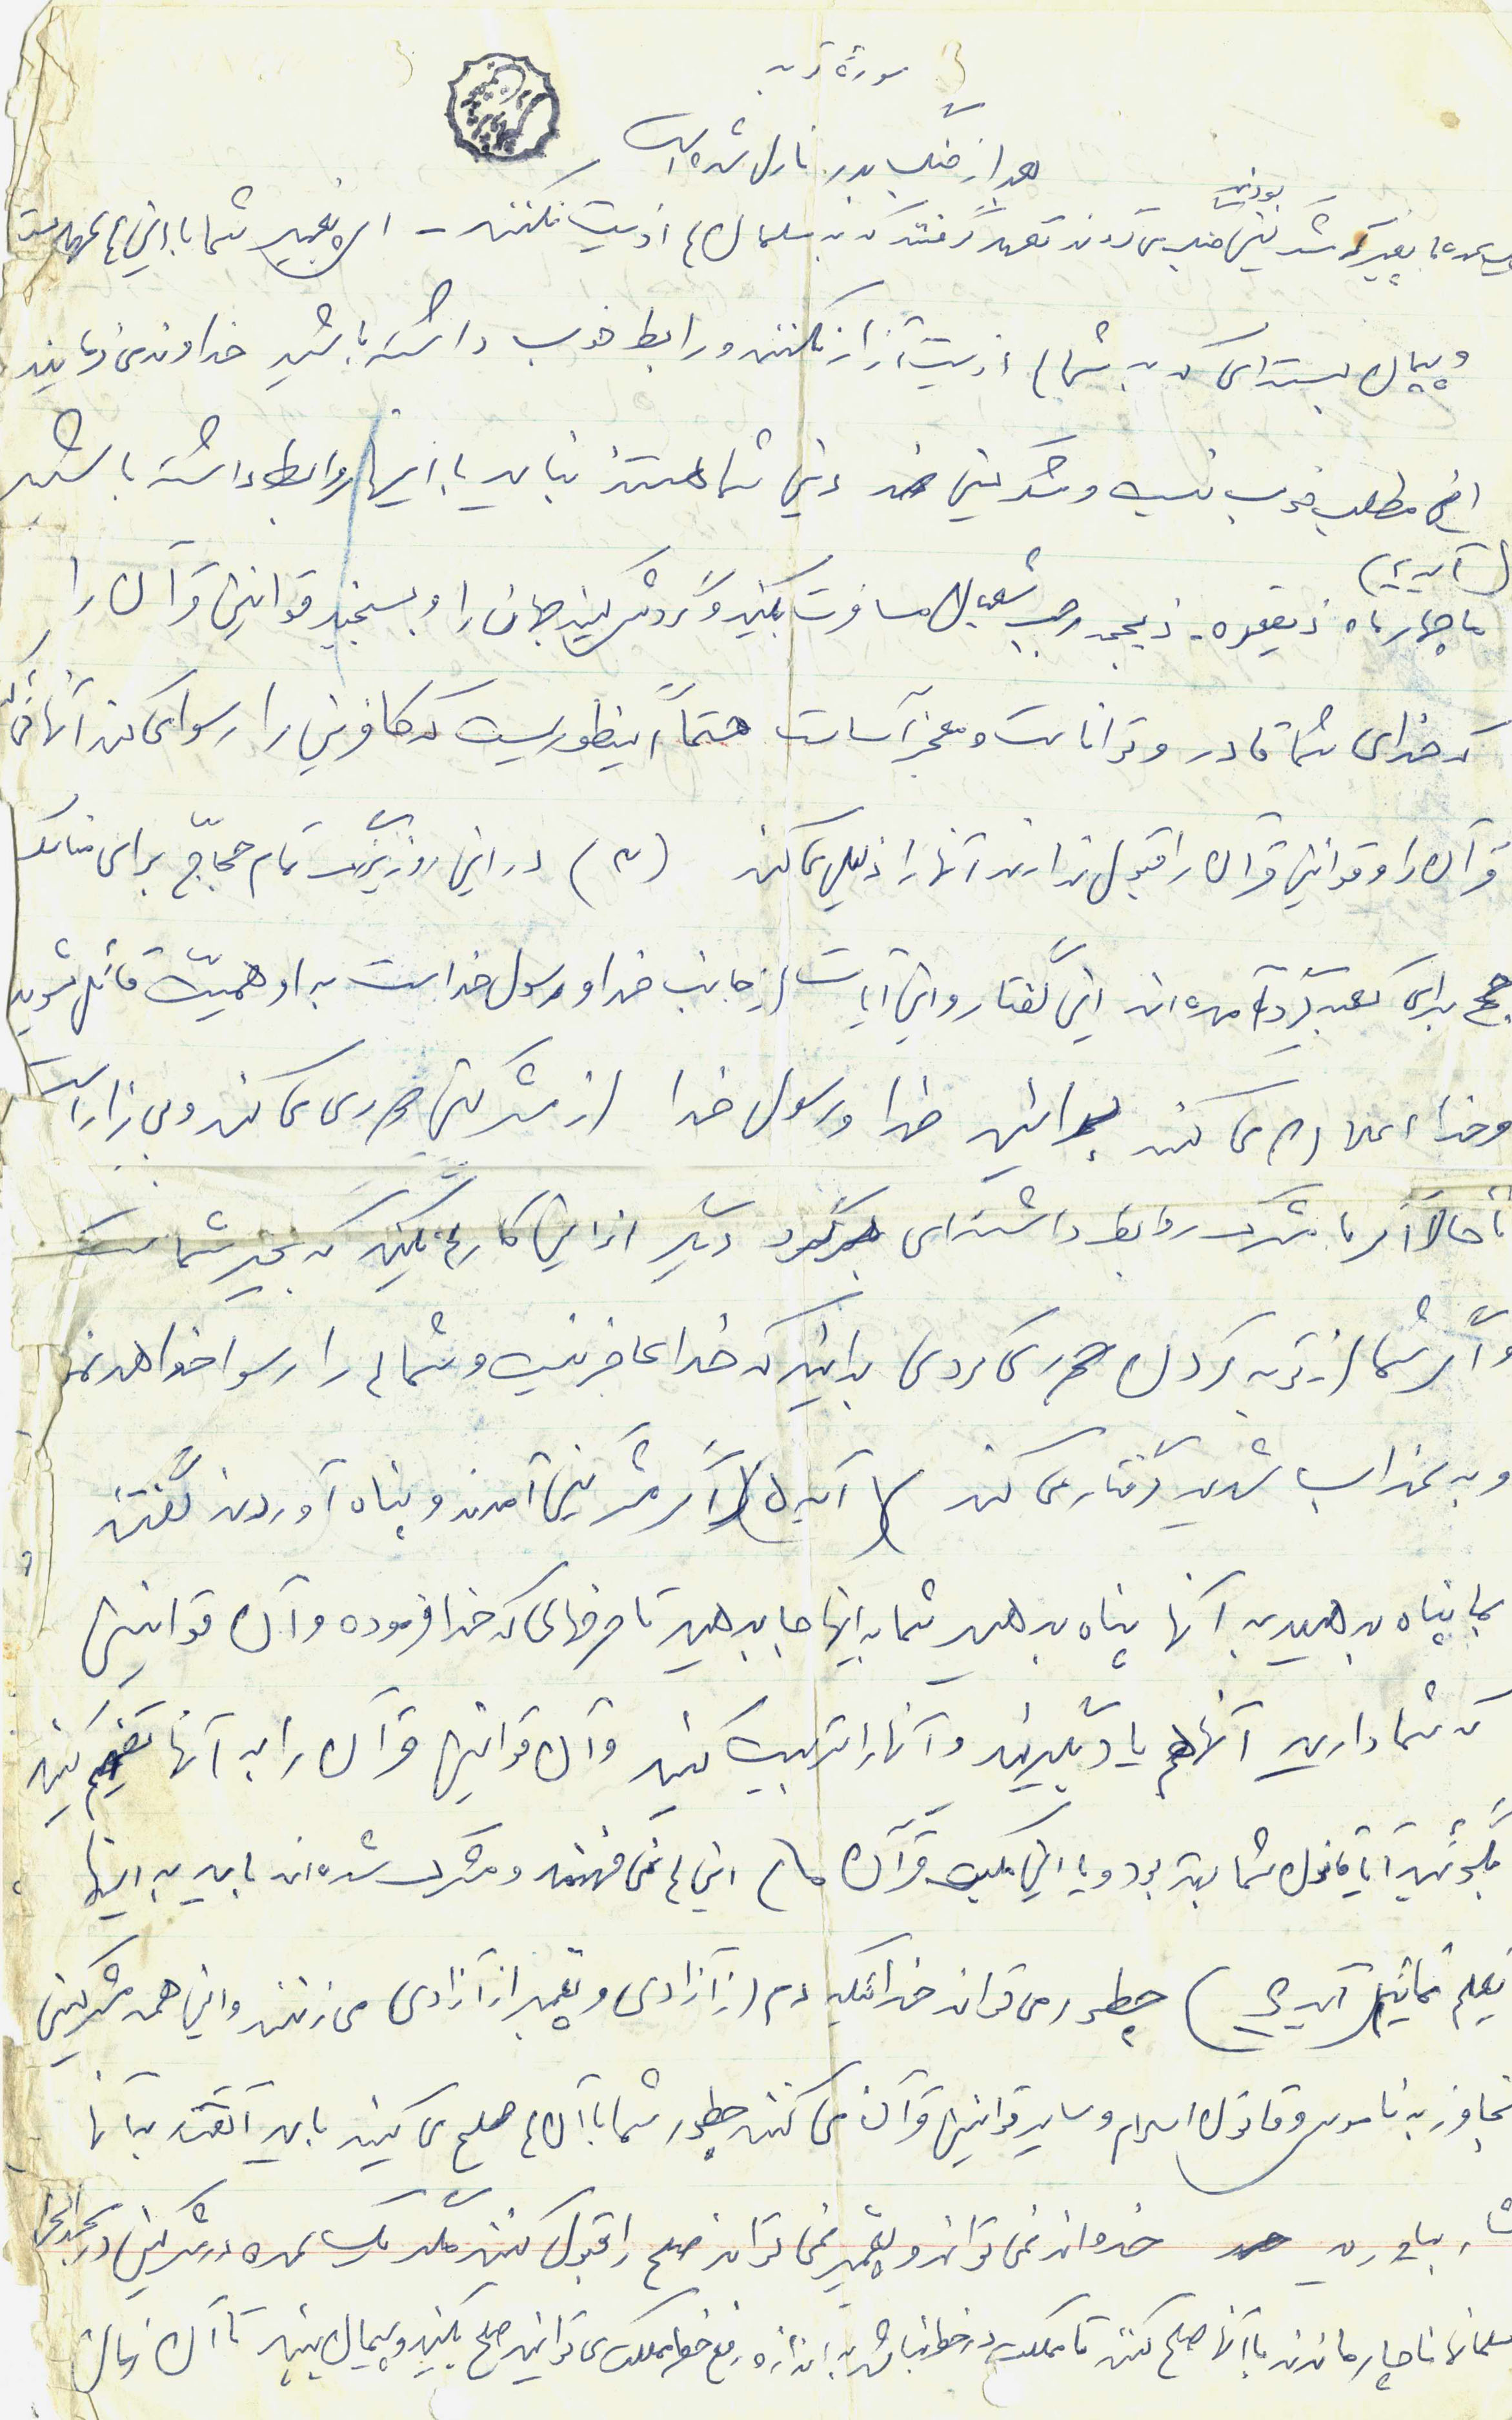 سورة توبه
بعد از جنگ بدر نازل شده است
بودند
پیغمبر که مشرکین جنگ می کردند تعهد گرفتند که به مسلمان ها اذیت نکنند - ای پیغمبر شما با این ها عهد بست
و پیمان بسته ای که به شما ها اذیت آزار نکنند و رابط خوب داشته باشید خداوند می فرمایند
این مطلب خوب نیست و مشرکین ضد دینی شما هستند نباید با اینها روابط داشته باشید
(آیه ۲)
تا چهار ماه ذیقعده - ذیحجه رجب شعبان مسافرت بکنید و گردش کنید جهان را و بسنجید قوانین قرآن را
که خدای شما قادر و توانا است و معجز آسا است حتماً اینطوریست که کافرین را رسوا می کند آنها
قرآن را و قوانین قرآن را قبول ندارند آنها را ذلیل می کند (۳) در این روز بزرگ تمام حجاج برای مناسک
حج برای کعبه گرد آمده اند این گفتار و این آیات از جانب خدا و رسول خداست به او همیّت قائل شوید
و خدا اعلام می کند بدانید خدا و رسول خدا از مشرکین دوری می کند و بی زار است
تا حالا اگر با مشرک روابط داشته ای برگرد دیگر از این کارها نکنید که بخیر شماست
و اگر شما از توبه کردن دوری کردی بدانید که خدا عاجز نیست و شما ها را رسوا خواهد نمود
و به عذاب شدید گرفتار می کند (آیه ۵) اگر مشرکین آمدند و پناه آوردند گفتند
بما پناه بدهید به آنها پناه بدهید شما به اینها جا بدهید تا حرفهائی که خدا فرموده و آن قوانین
که شما دارید آنها هم یاد بگیرند و آنها را تربیت کنید و آن قوانین قرآن را به آنها تفهیم کنید
بگوئید آیا قانون شما بهتر بود و یا این مکتب قرآن ما این ها نمی فهمند و مشرک شده اند باید به اینها
تعلیم نمائید (آیه ۶) چطور می تواند خدائیکه دم از آزادی و پیغمبر از آزادی می زنند و این همه مشرکین
تجاوز به ناموس و قانون اسلام و سایر قوانین قرآن می کنند چطور شما با آن ها صلح می کنید باید آنقدر به آنها
فشار بیاورید خداوند نمی تواند و پیغمبر نمی تواند صلح را قبول کنند مگر یک عده مشرکین در مسجد الحرام
مسلمانها ناچار ماندند با آنها صلح کنند تا مملکت در خطر نباشد به اندازه رفع خطر مملکت می توانید صلح بکنید و پیمان ببندید تا آن زمان